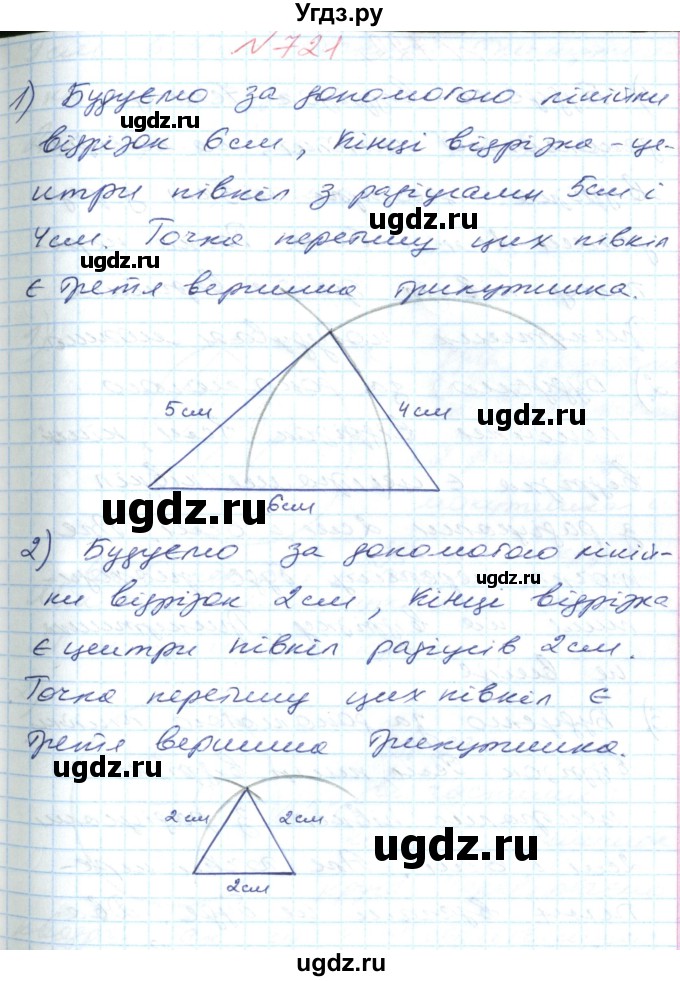 Угдз.ру
N 721
1) Будуємо за допомогою лінійки
ugdz.ru
відрізок 6см, Кінці відрізка - це-
нтри півкіл з радіусами 5см і
ugdz.ru
4см. Точка перетину цих півкіл
ugdz.ru
є третя вершина трикутника.
5см
4см
ugdz.ru
ugdz.ru
6см
2) Будуємо за допомогою ліній-
ugdz.ru
ки відрізок 2см, Кінці відрізка
є центри півкіл радіусів 2см.
Точка перетину цих півкіл є
третя вершина трикутника.
ugdz.ru
2см
2см
ugdz.ru
2см
ugdz.ru